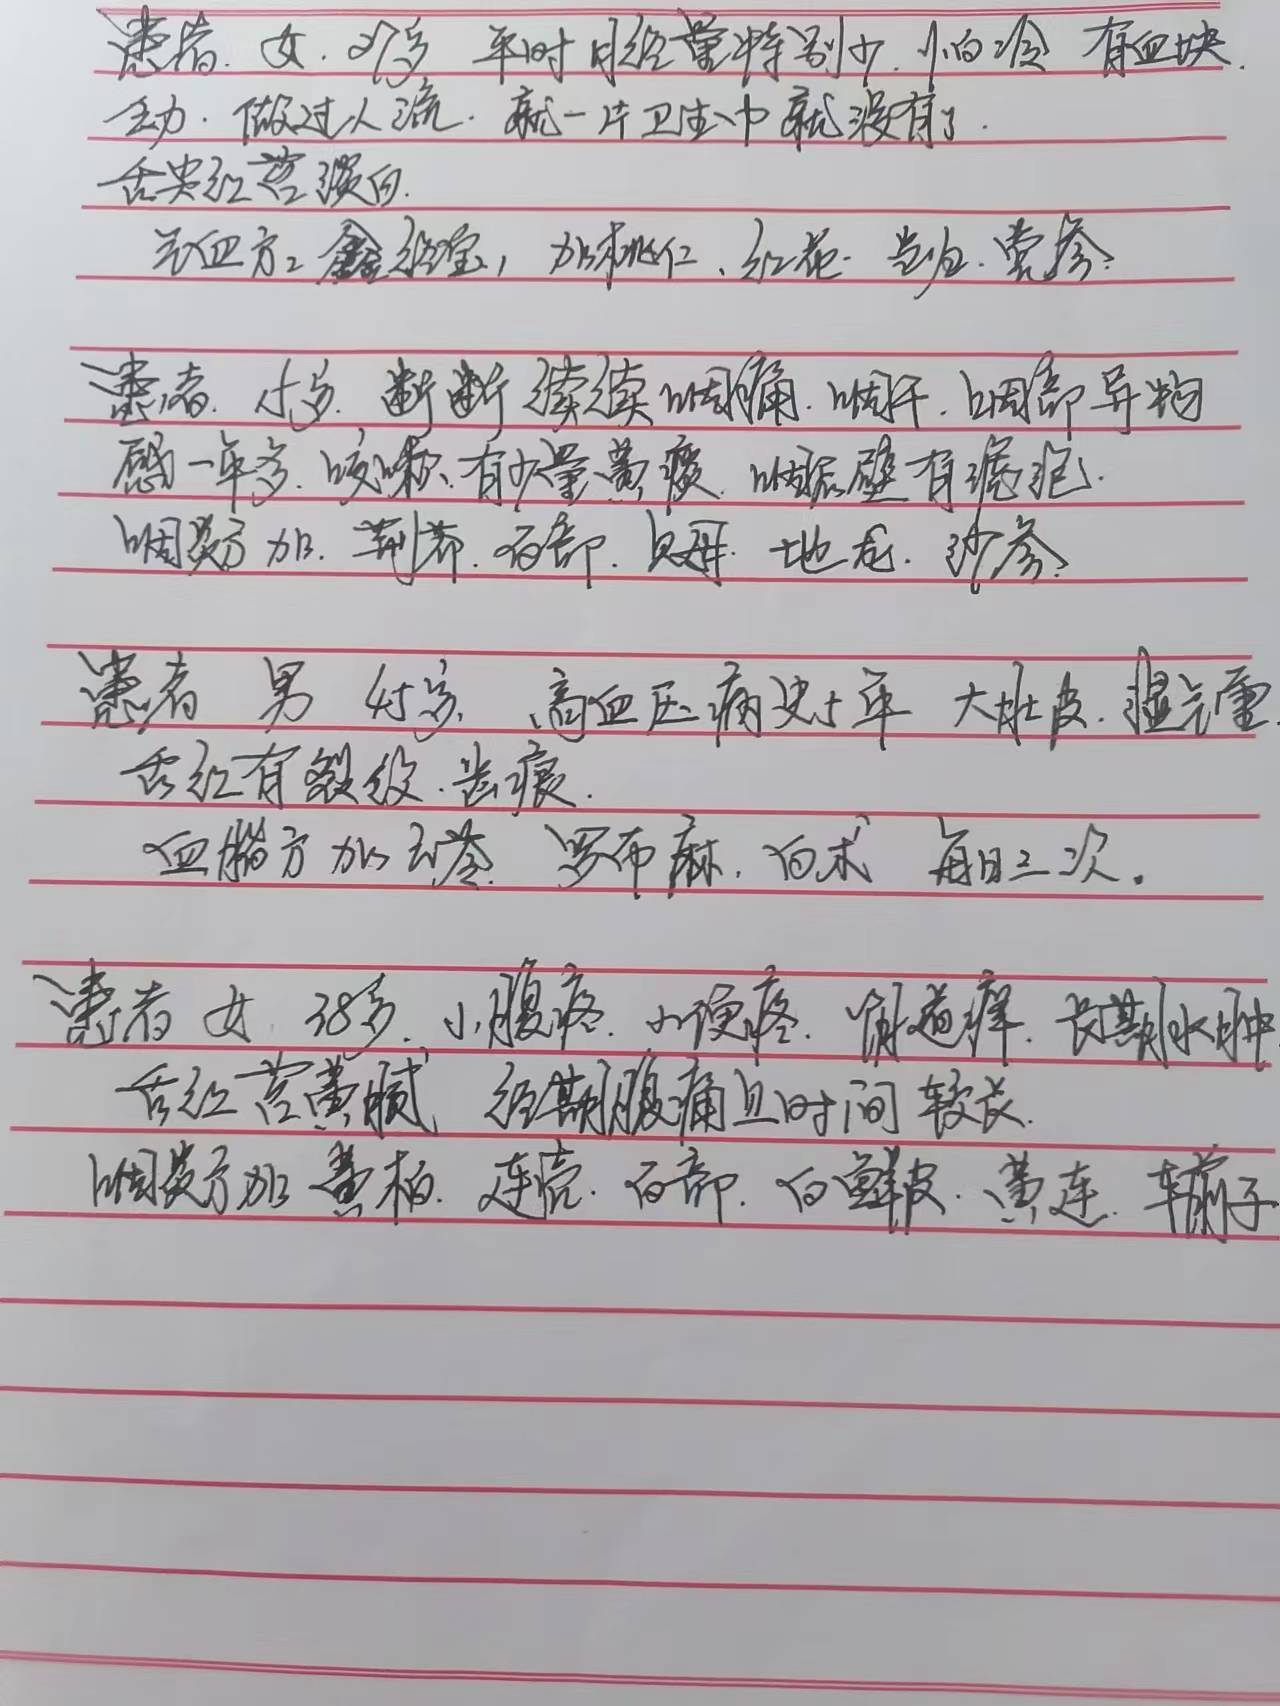 患者. 女. 27岁 平时月经量特别少. 怕冷 有血块.
主动. 做过人流. 就一片卫生巾就没有了.
舌尖红苔淡白.
气血方: 鑫经宝, 加桃仁、红花. 当归. 党参.
患者. 15岁. 断断续续咽痛. 咽干. 咽部异物
感一年多. 咳嗽、有少量黄痰. 咽后壁有滤泡.
咽炎方加. 荆芥. 百部. 贝母. 地龙. 沙参.
患者 男 45岁. 高血压病史5年 大肚皮. 湿气重.
舌红有裂纹. 齿痕.
血脂方加 罗布麻. 白术 每日三次.
患者 女. 38岁. 小腹疼. 小便疼. 阴道痒. 长期水肿.
舌红苔黄腻 经期腹痛且时间较长.
咽炎方加 黄柏. 连壳. 百部. 白鲜皮. 黄连. 车前子